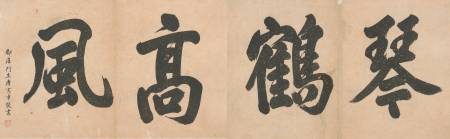 琴鶴高風